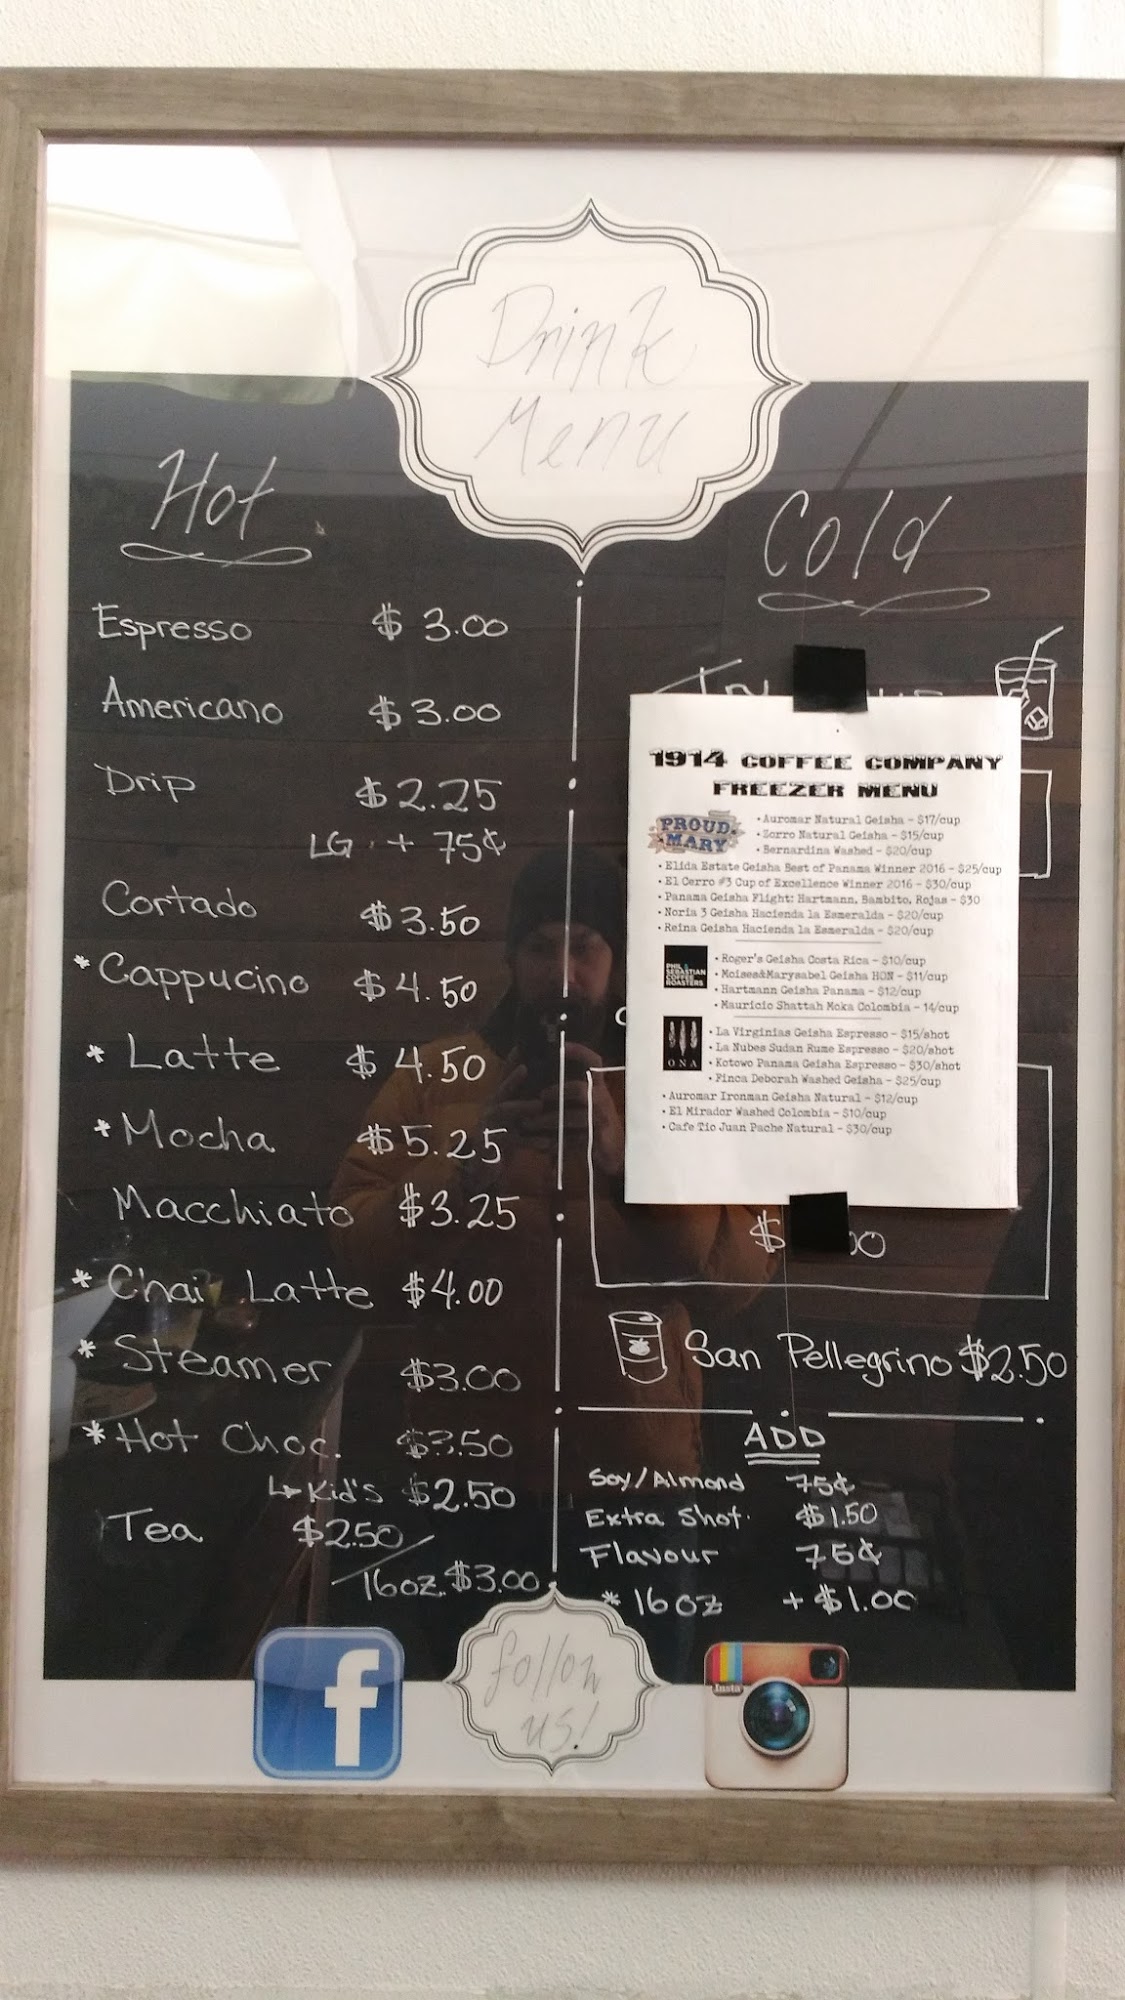 Drink
Menu
Hot
Espresso $3.00
Americano $3.00
Drip $2.25
LG. + 75¢
Cortado $3.50
*Cappucino $4.50
*Latte $4.50
*Mocha $5.25
Macchiato $3.25
*Chai Latte $4.00
*Steamer $3.00
*Hot Choc. $3.50
↳Kid's $2.50
Tea $2.50/
16oz. $3.00
Cold
Try
1914 COFFEE COMPANY
FREEZER MENU
PROUD
MARY
• Auromar Natural Geisha - $17/cup
• Zorro Natural Geisha - $15/cup
• Bernardina Washed - $20/cup
• Elida Estate Geisha Best of Panama Winner 2016 - $25/cup
• El Cerro #3 Cup of Excellence Winner 2016 - $30/cup
• Panama Geisha Flight: Hartmann, Bambito, Rojas - $30
• Noria 3 Geisha Hacienda la Esmeralda - $20/cup
• Reina Geisha Hacienda la Esmeralda - $20/cup
PHIL &
SEBASTIAN
COFFEE
ROASTERS
• Roger's Geisha Costa Rica - $10/cup
• Moises&Marysabel Geisha HON - $11/cup
• Hartmann Geisha Panama - $12/cup
• Mauricio Shattah Moka Colombia - 14/cup
ONA
• La Virginias Geisha Espresso - $15/shot
• La Nubes Sudan Rume Espresso - $20/shot
• Kotowo Panama Geisha Espresso - $30/shot
• Finca Deborah Washed Geisha - $25/cup
• Auromar Ironman Geisha Natural - $12/cup
• El Mirador Washed Colombia - $10/cup
• Cafe Tio Juan Pache Natural - $30/cup
San Pellegrino $2.50
ADD
Soy/Almond 75¢
Extra Shot. $1.50
Flavour 75¢
*16oz +$1.00
follow
us!
f
Insta